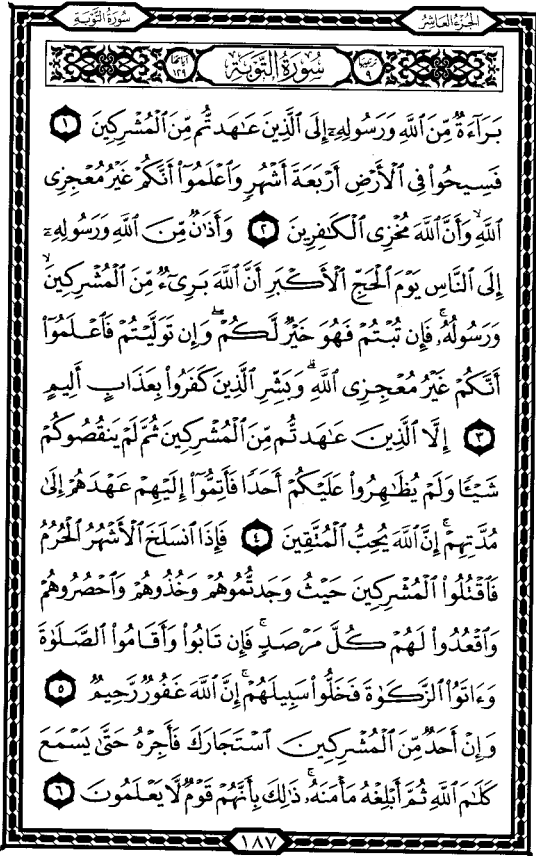 الجزء العاشر
سورة التوبة
ترتيبها ٩
سورة التوبة
آياتها ١٢٩
بَرَآءَةٌ مِّنَ ٱللَّهِ وَرَسُولِهِۦٓ إِلَى ٱلَّذِينَ عَٰهَدتُّم مِّنَ ٱلْمُشْرِكِينَ ١
فَسِيحُوا۟ فِى ٱلْأَرْضِ أَرْبَعَةَ أَشْهُرٍ وَٱعْلَمُوٓا۟ أَنَّكُمْ غَيْرُ مُعْجِزِى
ٱللَّهِ ۙ وَأَنَّ ٱللَّهَ مُخْزِى ٱلْكَٰفِرِينَ ٢ وَأَذَٰنٌ مِّنَ ٱللَّهِ وَرَسُولِهِۦٓ
إِلَى ٱلنَّاسِ يَوْمَ ٱلْحَجِّ ٱلْأَكْبَرِ أَنَّ ٱللَّهَ بَرِىٓءٌ مِّنَ ٱلْمُشْرِكِينَ ۙ
وَرَسُولُهُۥ ۚ فَإِن تُبْتُمْ فَهُوَ خَيْرٌ لَّكُمْ ۖ وَإِن تَوَلَّيْتُمْ فَٱعْلَمُوٓا۟
أَنَّكُمْ غَيْرُ مُعْجِزِى ٱللَّهِ ۗ وَبَشِّرِ ٱلَّذِينَ كَفَرُوا۟ بِعَذَابٍ أَلِيمٍ
٣ إِلَّا ٱلَّذِينَ عَٰهَدتُّم مِّنَ ٱلْمُشْرِكِينَ ثُمَّ لَمْ يَنقُصُوكُمْ
شَيْـًٔا وَلَمْ يُظَٰهِرُوا۟ عَلَيْكُمْ أَحَدًا فَأَتِمُّوٓا۟ إِلَيْهِمْ عَهْدَهُمْ إِلَىٰ
مُدَّتِهِمْ ۚ إِنَّ ٱللَّهَ يُحِبُّ ٱلْمُتَّقِينَ ٤ فَإِذَا ٱنسَلَخَ ٱلْأَشْهُرُ ٱلْحُرُمُ
فَٱقْتُلُوا۟ ٱلْمُشْرِكِينَ حَيْثُ وَجَدتُّمُوهُمْ وَخُذُوهُمْ وَٱحْصُرُوهُمْ
وَٱقْعُدُوا۟ لَهُمْ كُلَّ مَرْصَدٍ ۚ فَإِن تَابُوا۟ وَأَقَامُوا۟ ٱلصَّلَوٰةَ
وَءَاتَوُا۟ ٱلزَّكَوٰةَ فَخَلُّوا۟ سَبِيلَهُمْ ۚ إِنَّ ٱللَّهَ غَفُورٌ رَّحِيمٌ ٥
وَإِنْ أَحَدٌ مِّنَ ٱلْمُشْرِكِينَ ٱسْتَجَارَكَ فَأَجِرْهُ حَتَّىٰ يَسْمَعَ
كَلَٰمَ ٱللَّهِ ثُمَّ أَبْلِغْهُ مَأْمَنَهُۥ ۚ ذَٰلِكَ بِأَنَّهُمْ قَوْمٌ لَّا يَعْلَمُونَ ٦
١٨٧